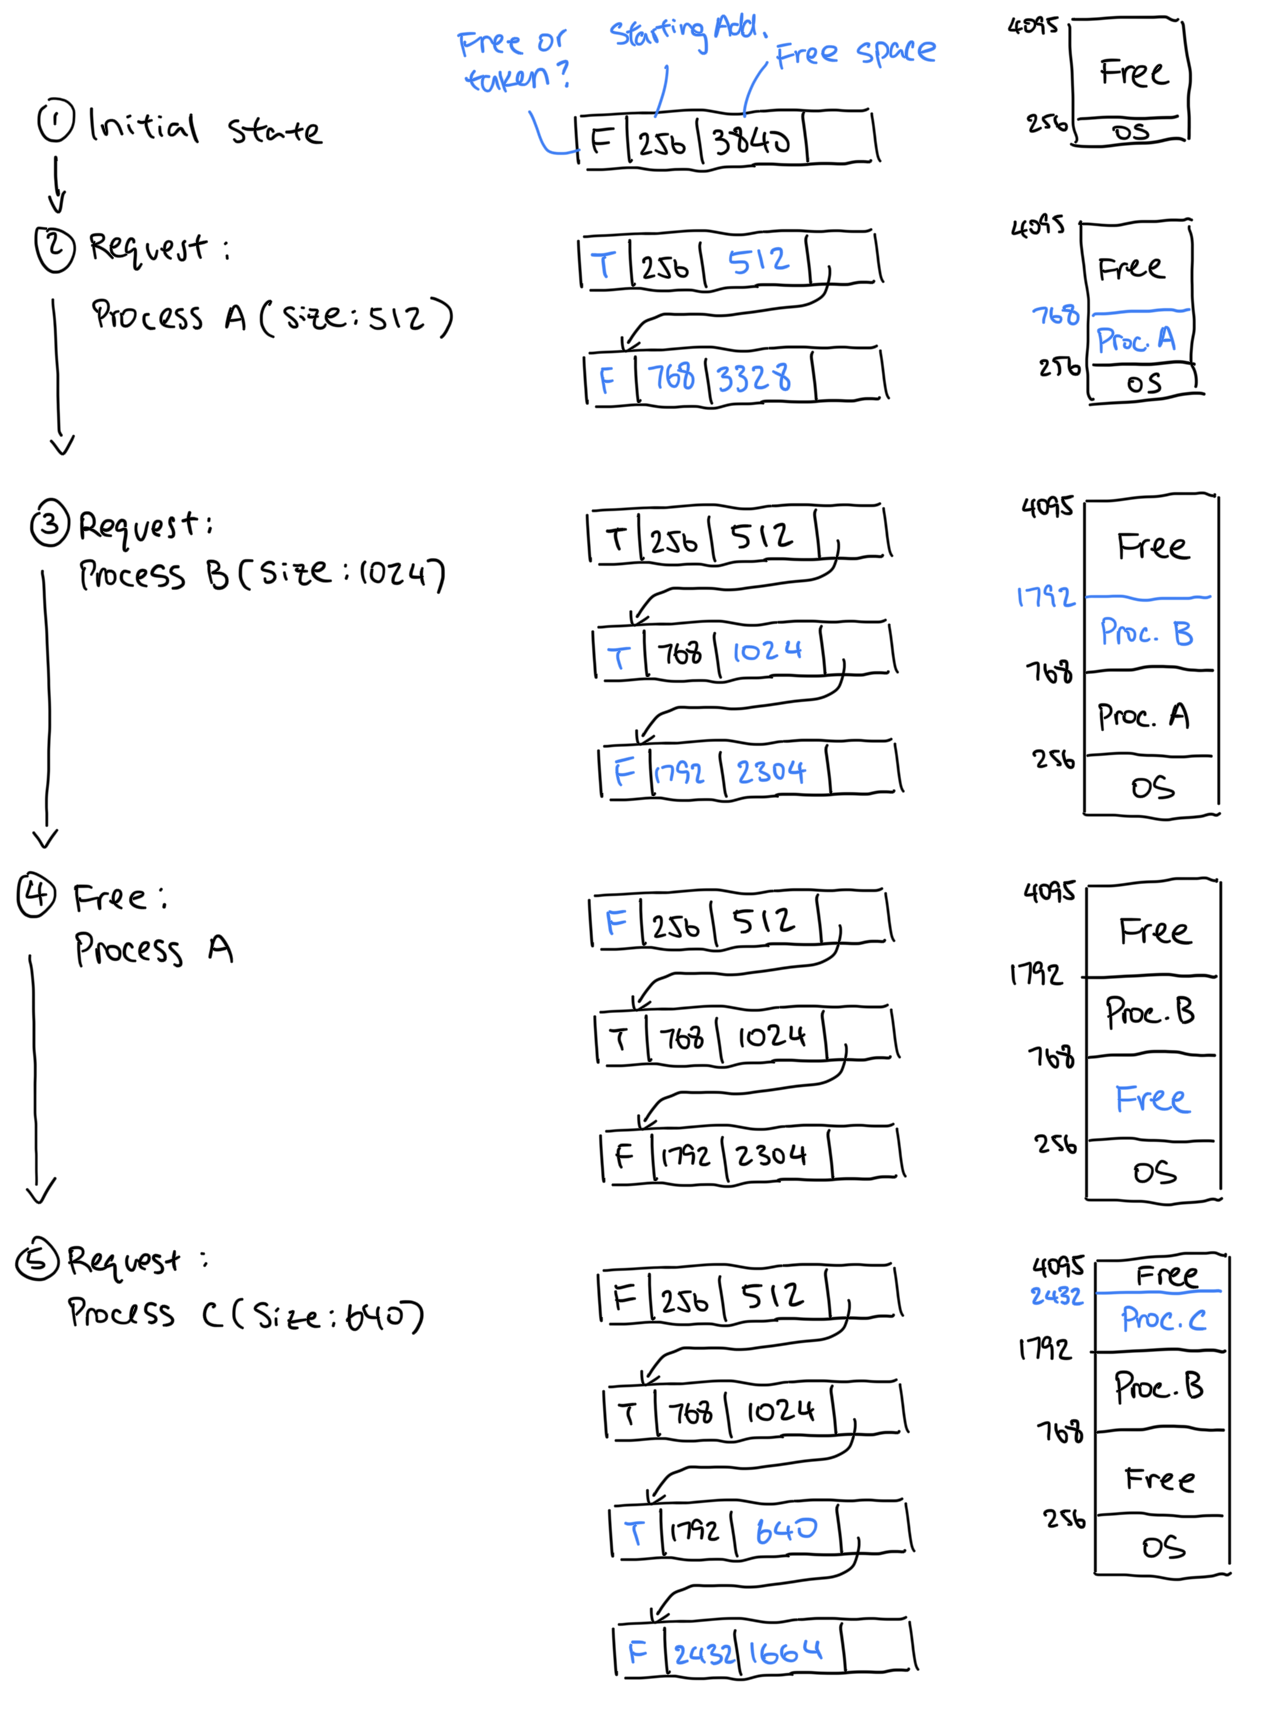 Free or taken?
Starting Add.
Free space
① Initial state
F 256 3840
4095
Free
256
OS
② Request:
Process A (size: 512)
T 256 512
F 768 3328
4095
Free
768
Proc. A
256
OS
③ Request:
Process B (size: 1024)
T 256 512
T 768 1024
F 1792 2304
4095
Free
1792
Proc. B
768
Proc. A
256
OS
④ Free:
Process A
F 256 512
T 768 1024
F 1792 2304
4095
Free
1792
Proc. B
768
Free
256
OS
⑤ Request:
Process C (size: 640)
F 256 512
T 768 1024
T 1792 640
F 2432 1664
4095
Free
2432
Proc. C
1792
Proc. B
768
Free
256
OS